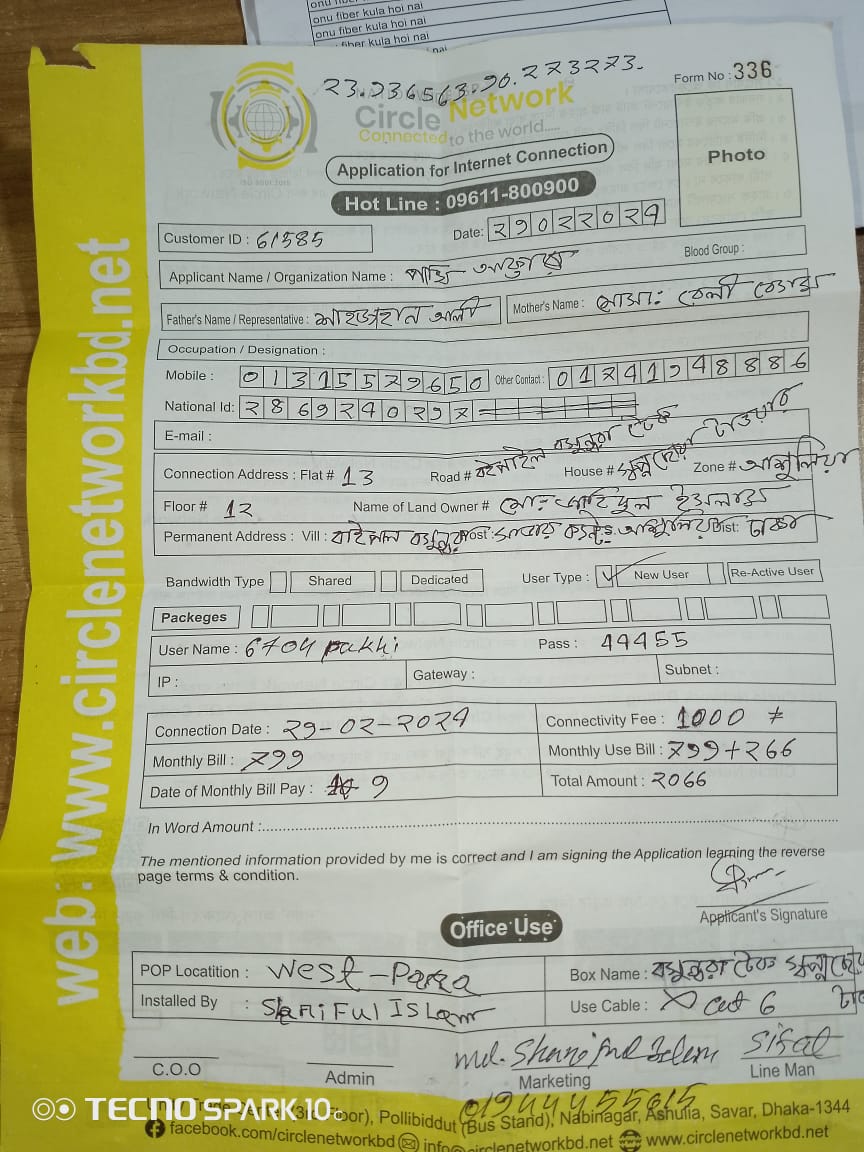 onu fiber kula hoi nai
onu fiber kula hoi nai
fiber kula hoi nai
nai
23.936563.90.273273.
Form No : 336
Circle Network
Connected to the world.....
ISO 9001:2015
Photo
Application for Internet Connection
Hot Line : 09611-800900
Date: 29022024
Customer ID : 61585
Blood Group :
Applicant Name / Organization Name :
Father's Name / Representative : আলী
Mother's Name : মোসা:
Occupation / Designation :
Mobile : 01315529650 Other Contact :
National Id:
E-mail :
Connection Address : Flat # 13 Road # House # Zone # আশুলিয়া
Floor # 12 Name of Land Owner #
Permanent Address : Vill : Post: P.S: আশুলিয়া Dist: ঢাকা
Bandwidth Type Shared Dedicated User Type : ✓ New User Re-Active User
Packeges
User Name : 6704 pakhi Pass : 44455
IP : Gateway : Subnet :
Connection Date : 29-02-2024 Connectivity Fee : 1000
Monthly Bill : 799 Monthly Use Bill : 799+266
Date of Monthly Bill Pay : 9 Total Amount : 2066
In Word Amount :
The mentioned information provided by me is correct and I am signing the Application learning the reverse
page terms & condition.
Applicant's Signature
Office Use
POP Locatition : West-Para Box Name :
Installed By : Shariful Islam Use Cable : cat 6
md. Shariful Islam Sifat
C.O.O Admin Marketing Line Man
01944455615
Floor), Pollibiddut (Bus Stand), Nabinagar, Ashulia, Savar, Dhaka-1344
facebook.com/circlenetworkbd info@circlenetworkbd.net www.circlenetworkbd.net
web: www.circlenetworkbd.net
TECNO SPARK 10